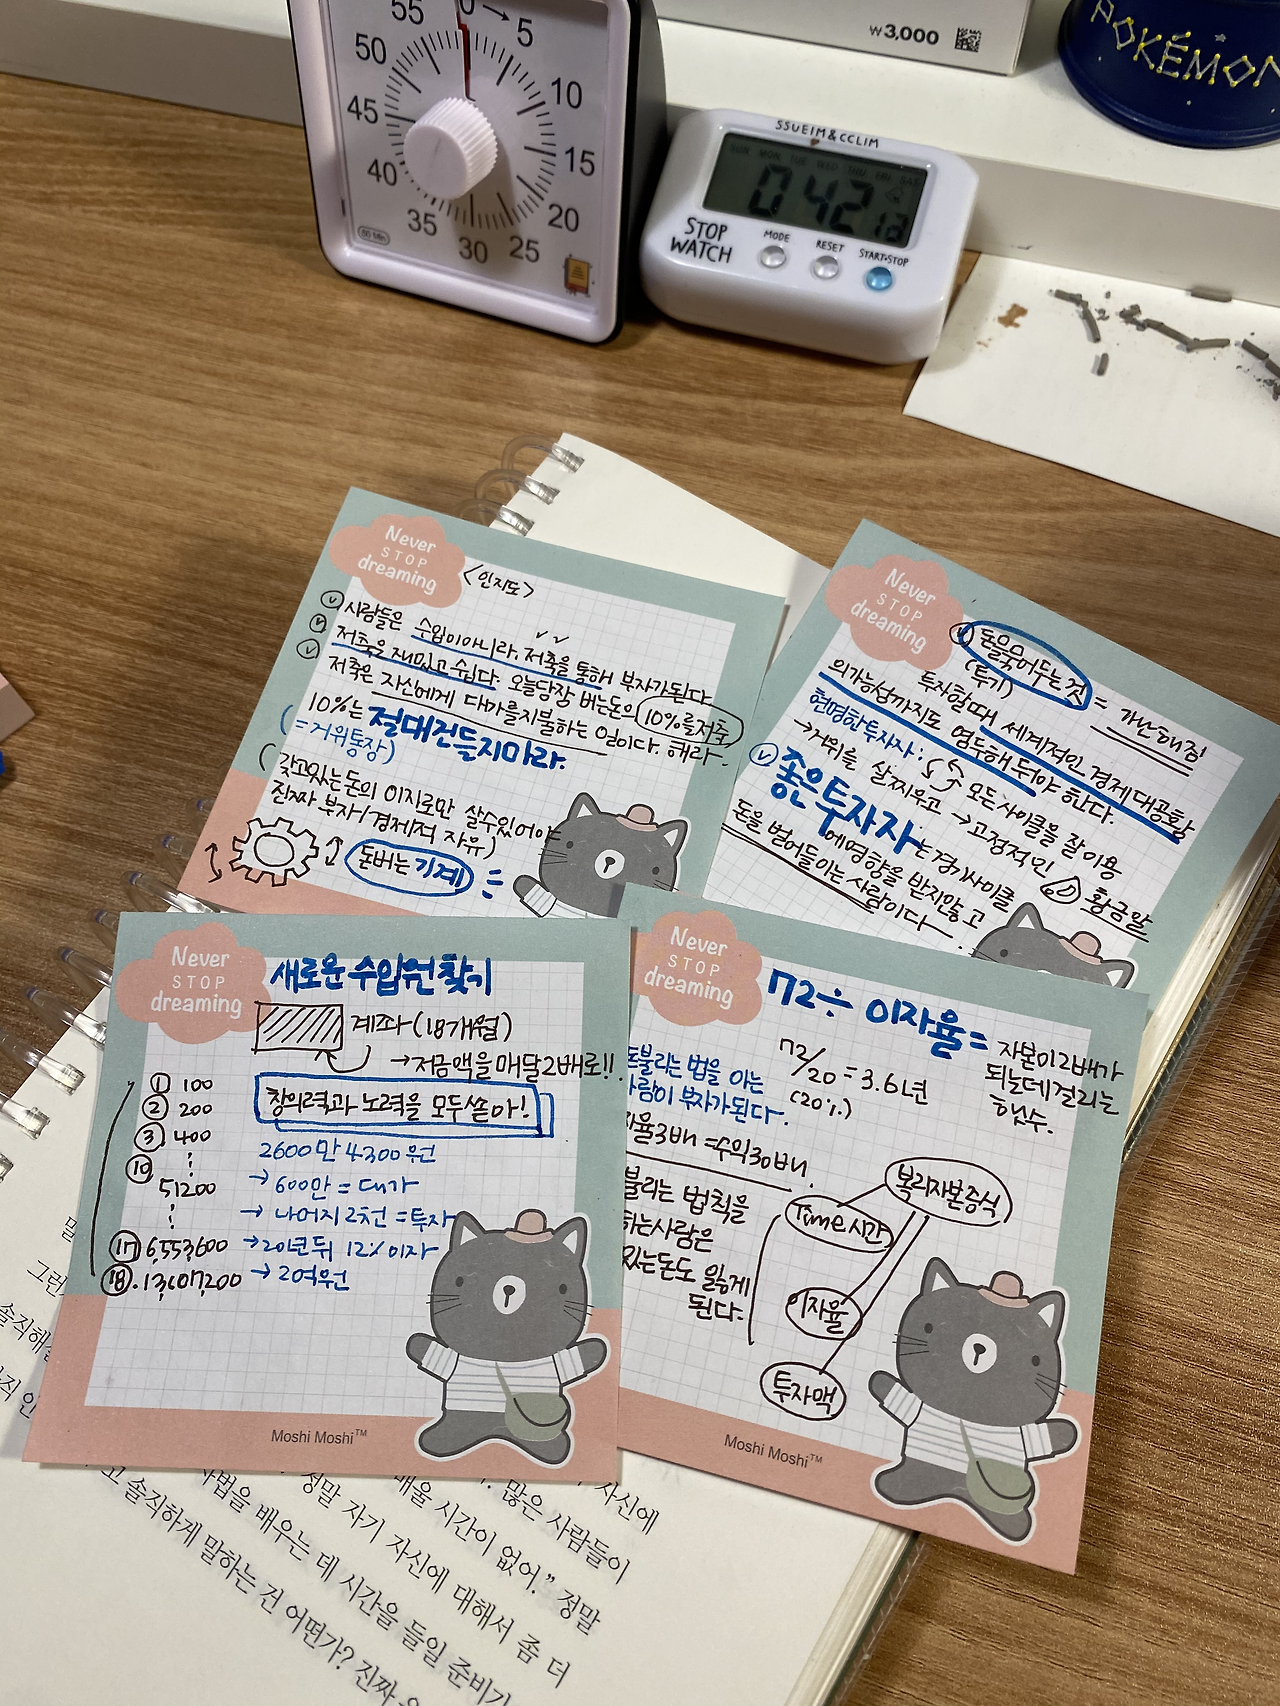 55 0→ 5
50
10
45
15
40
20
35
30
25
60 Min
₩3,000
POKÉMON
SSUEIM&CCLIM
SUN MON TUE WED THU FRI SAT
STOP
WATCH
MODE
RESET
START•STOP
Never
STOP
dreaming
<인지도>
사람들은 수입이아니라, 저축을 통해 부자가된다
저축은 재밌고 쉽다. 오늘당장 버는돈의 10%를저축
저축은 자신에게 대가를지불하는 일이다. 해라.
10%는 절대건들지마라.
(=거위통장)
(갖고있는 돈의 이자로만 살수있어야
진짜 부자/경제적 자유)
돈버는 기계 =
Never
STOP
dreaming
돈을묶어두는것 = 가난해짐
(투기)
투자할때 세계적인 경제대공황
의가능성까지도 염두해둬야 한다.
현명한투자자: 모든사이클을 잘이용
→거위를 살찌우고 →고정적인 황금알
좋은투자자는 경기사이클
에영향을 받지않고
돈을 벌어들이는 사람이다.
Never
STOP
dreaming
새로운 수입원 찾기
계좌 (18개월)
→저금액을 매달 2배로!!
창의력과 노력을 모두쏟아!
① 100
② 200
③ 400
⑩ 51200
⑰ 6,553,600
⑱ 13,107,200
2600만 4300원
→ 600만 = 대가
→ 나머지 2천 = 투자
→20년뒤 12% 이자
→ 2억원
Moshi Moshi™
Never
STOP
dreaming
72÷ 이자율= 자본이2배가
되는데걸리는
햇수.
72/20 = 3.6년
(20%)
돈불리는 법을 아는
사람이 부자가된다.
이자율3배 =수익30배.
불리는 법칙을
하는사람은
있는돈도 잃게
된다.
복리자본증식
Time 시간
이자율
투자액
Moshi Moshi™
자신에
많은 사람들이
배울 시간이 없어.” 정말
정말 자기 자신에 대해서 좀 더
법을 배우는 데 시간을 들일 준비가
고 솔직하게 말하는 건 어떤가? 진짜